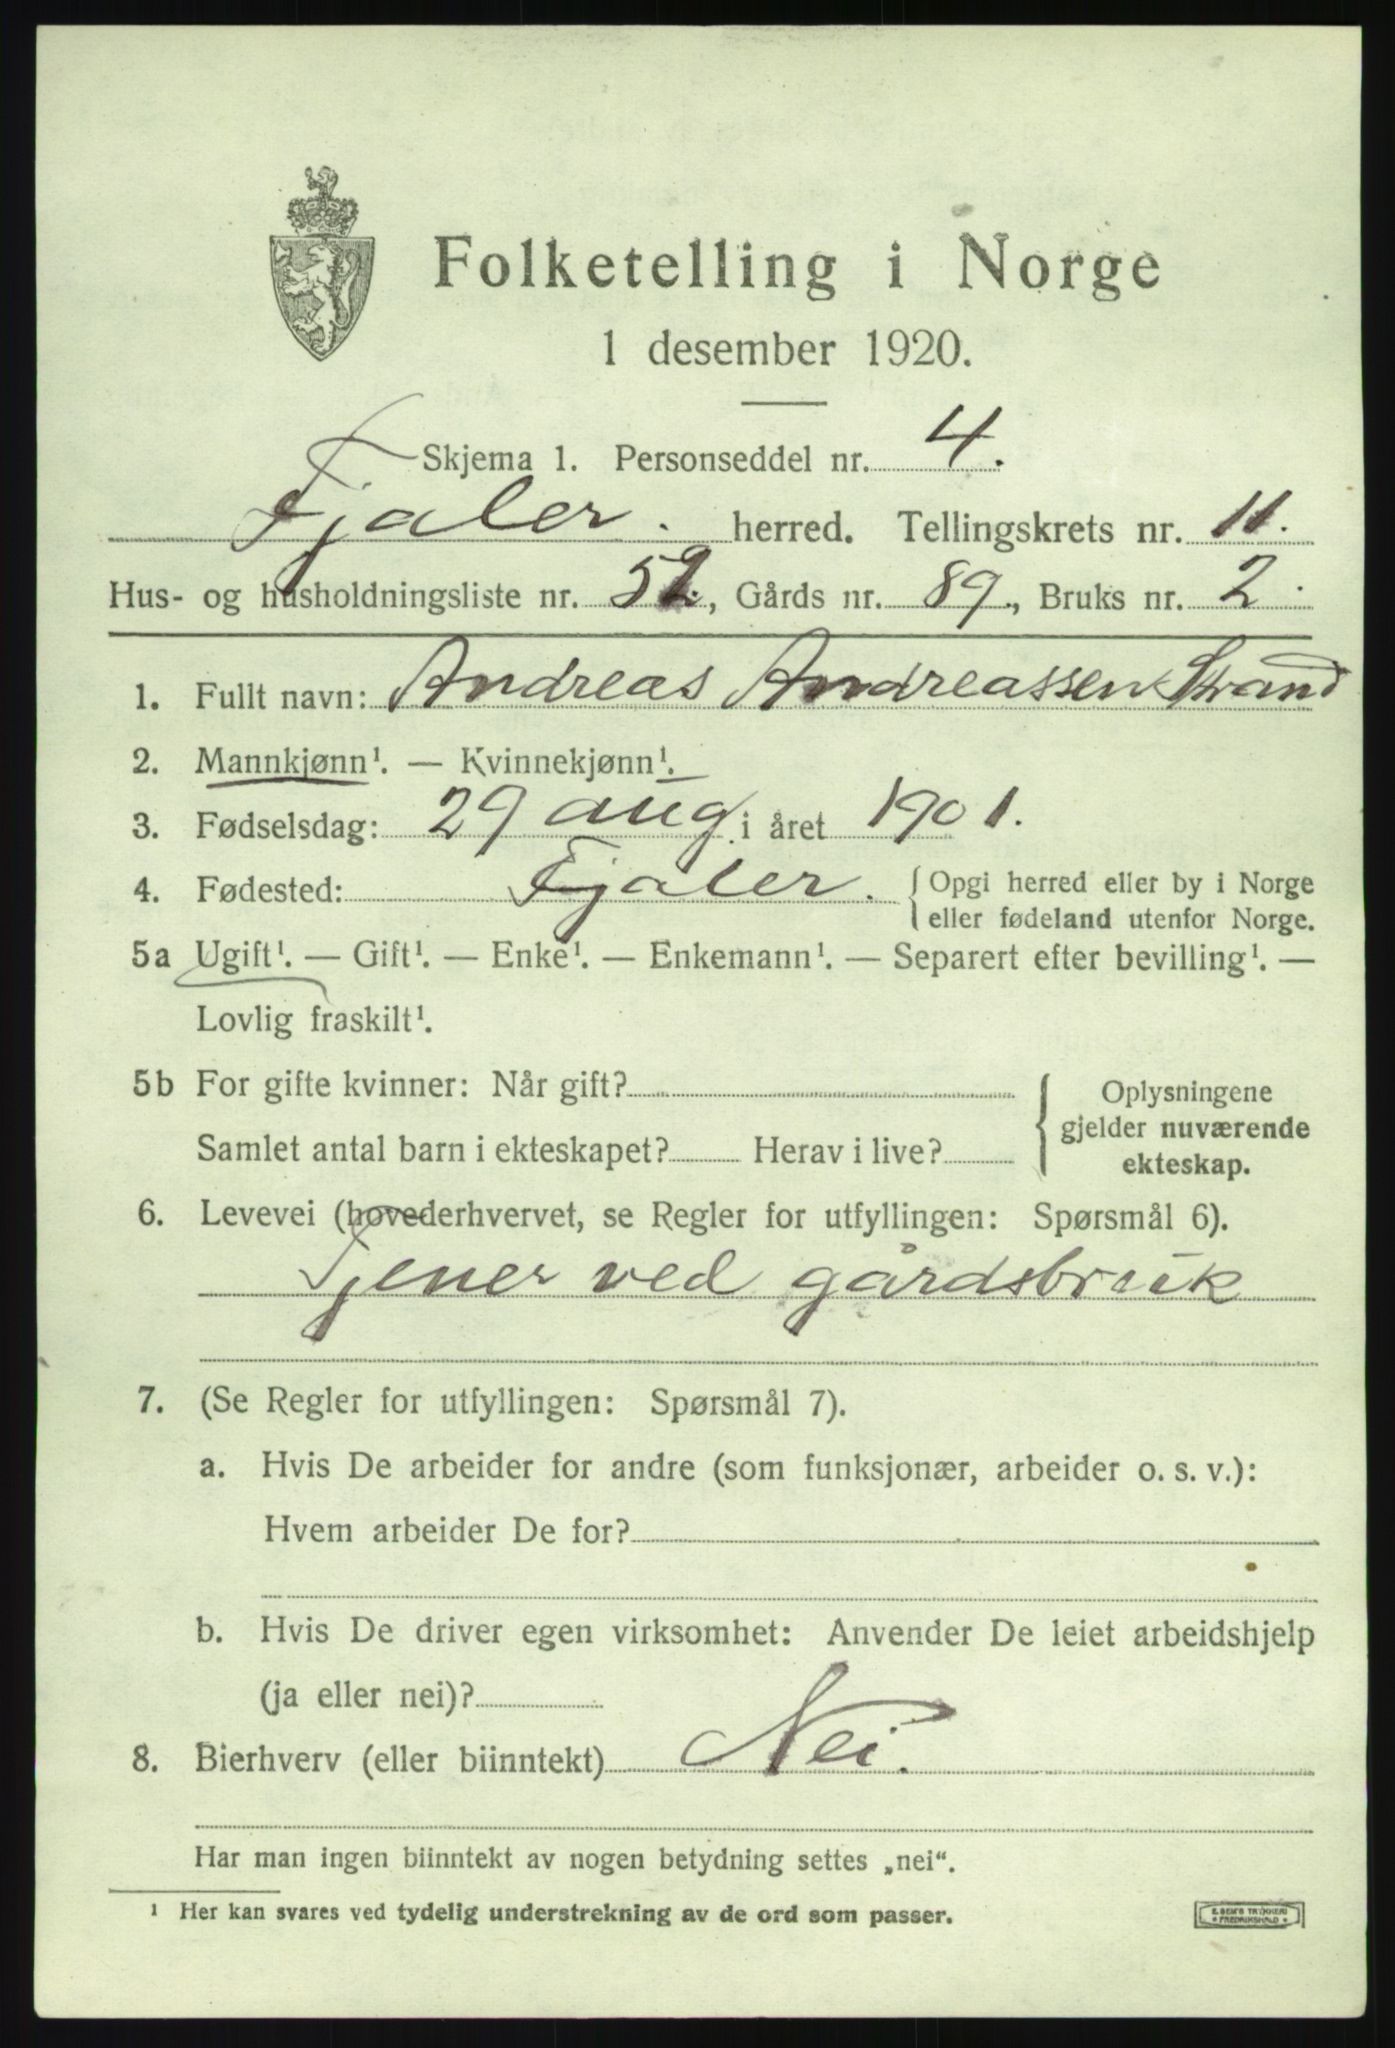 Folketelling i Norge
1 desember 1920.
Skjema 1. Personseddel nr. 4.
Fjaler. herred. Tellingskrets nr. 11.
Hus- og husholdningsliste nr. 52., Gårds nr. 89., Bruks nr. 2.
1. Fullt navn: Andreas Andreassen Strand
2. Mannkjønn¹. — Kvinnekjønn¹.
3. Fødselsdag: 29 aug. i året 1901.
4. Fødested: Fjaler. { Opgi herred eller by i Norge
eller fødeland utenfor Norge.
5a Ugift¹. — Gift¹. — Enke¹. — Enkemann¹. — Separert efter bevilling¹. —
Lovlig fraskilt¹.
5b For gifte kvinner: Når gift?
Samlet antal barn i ekteskapet? Herav i live?
{ Oplysningene
gjelder nuværende
ekteskap.
6. Levevei (hovederhvervet, se Regler for utfyllingen: Spørsmål 6).
Tjener ved gårdsbruk
7. (Se Regler for utfyllingen: Spørsmål 7).
a. Hvis De arbeider for andre (som funksjonær, arbeider o. s. v.):
Hvem arbeider De for?
b. Hvis De driver egen virksomhet: Anvender De leiet arbeidshjelp
(ja eller nei)?
8. Bierhverv (eller biinntekt) Nei.
Har man ingen biinntekt av nogen betydning settes „nei“.
¹ Her kan svares ved tydelig understrekning av de ord som passer.
E. SEM'S TRYKKERI
FREDRIKSHALD